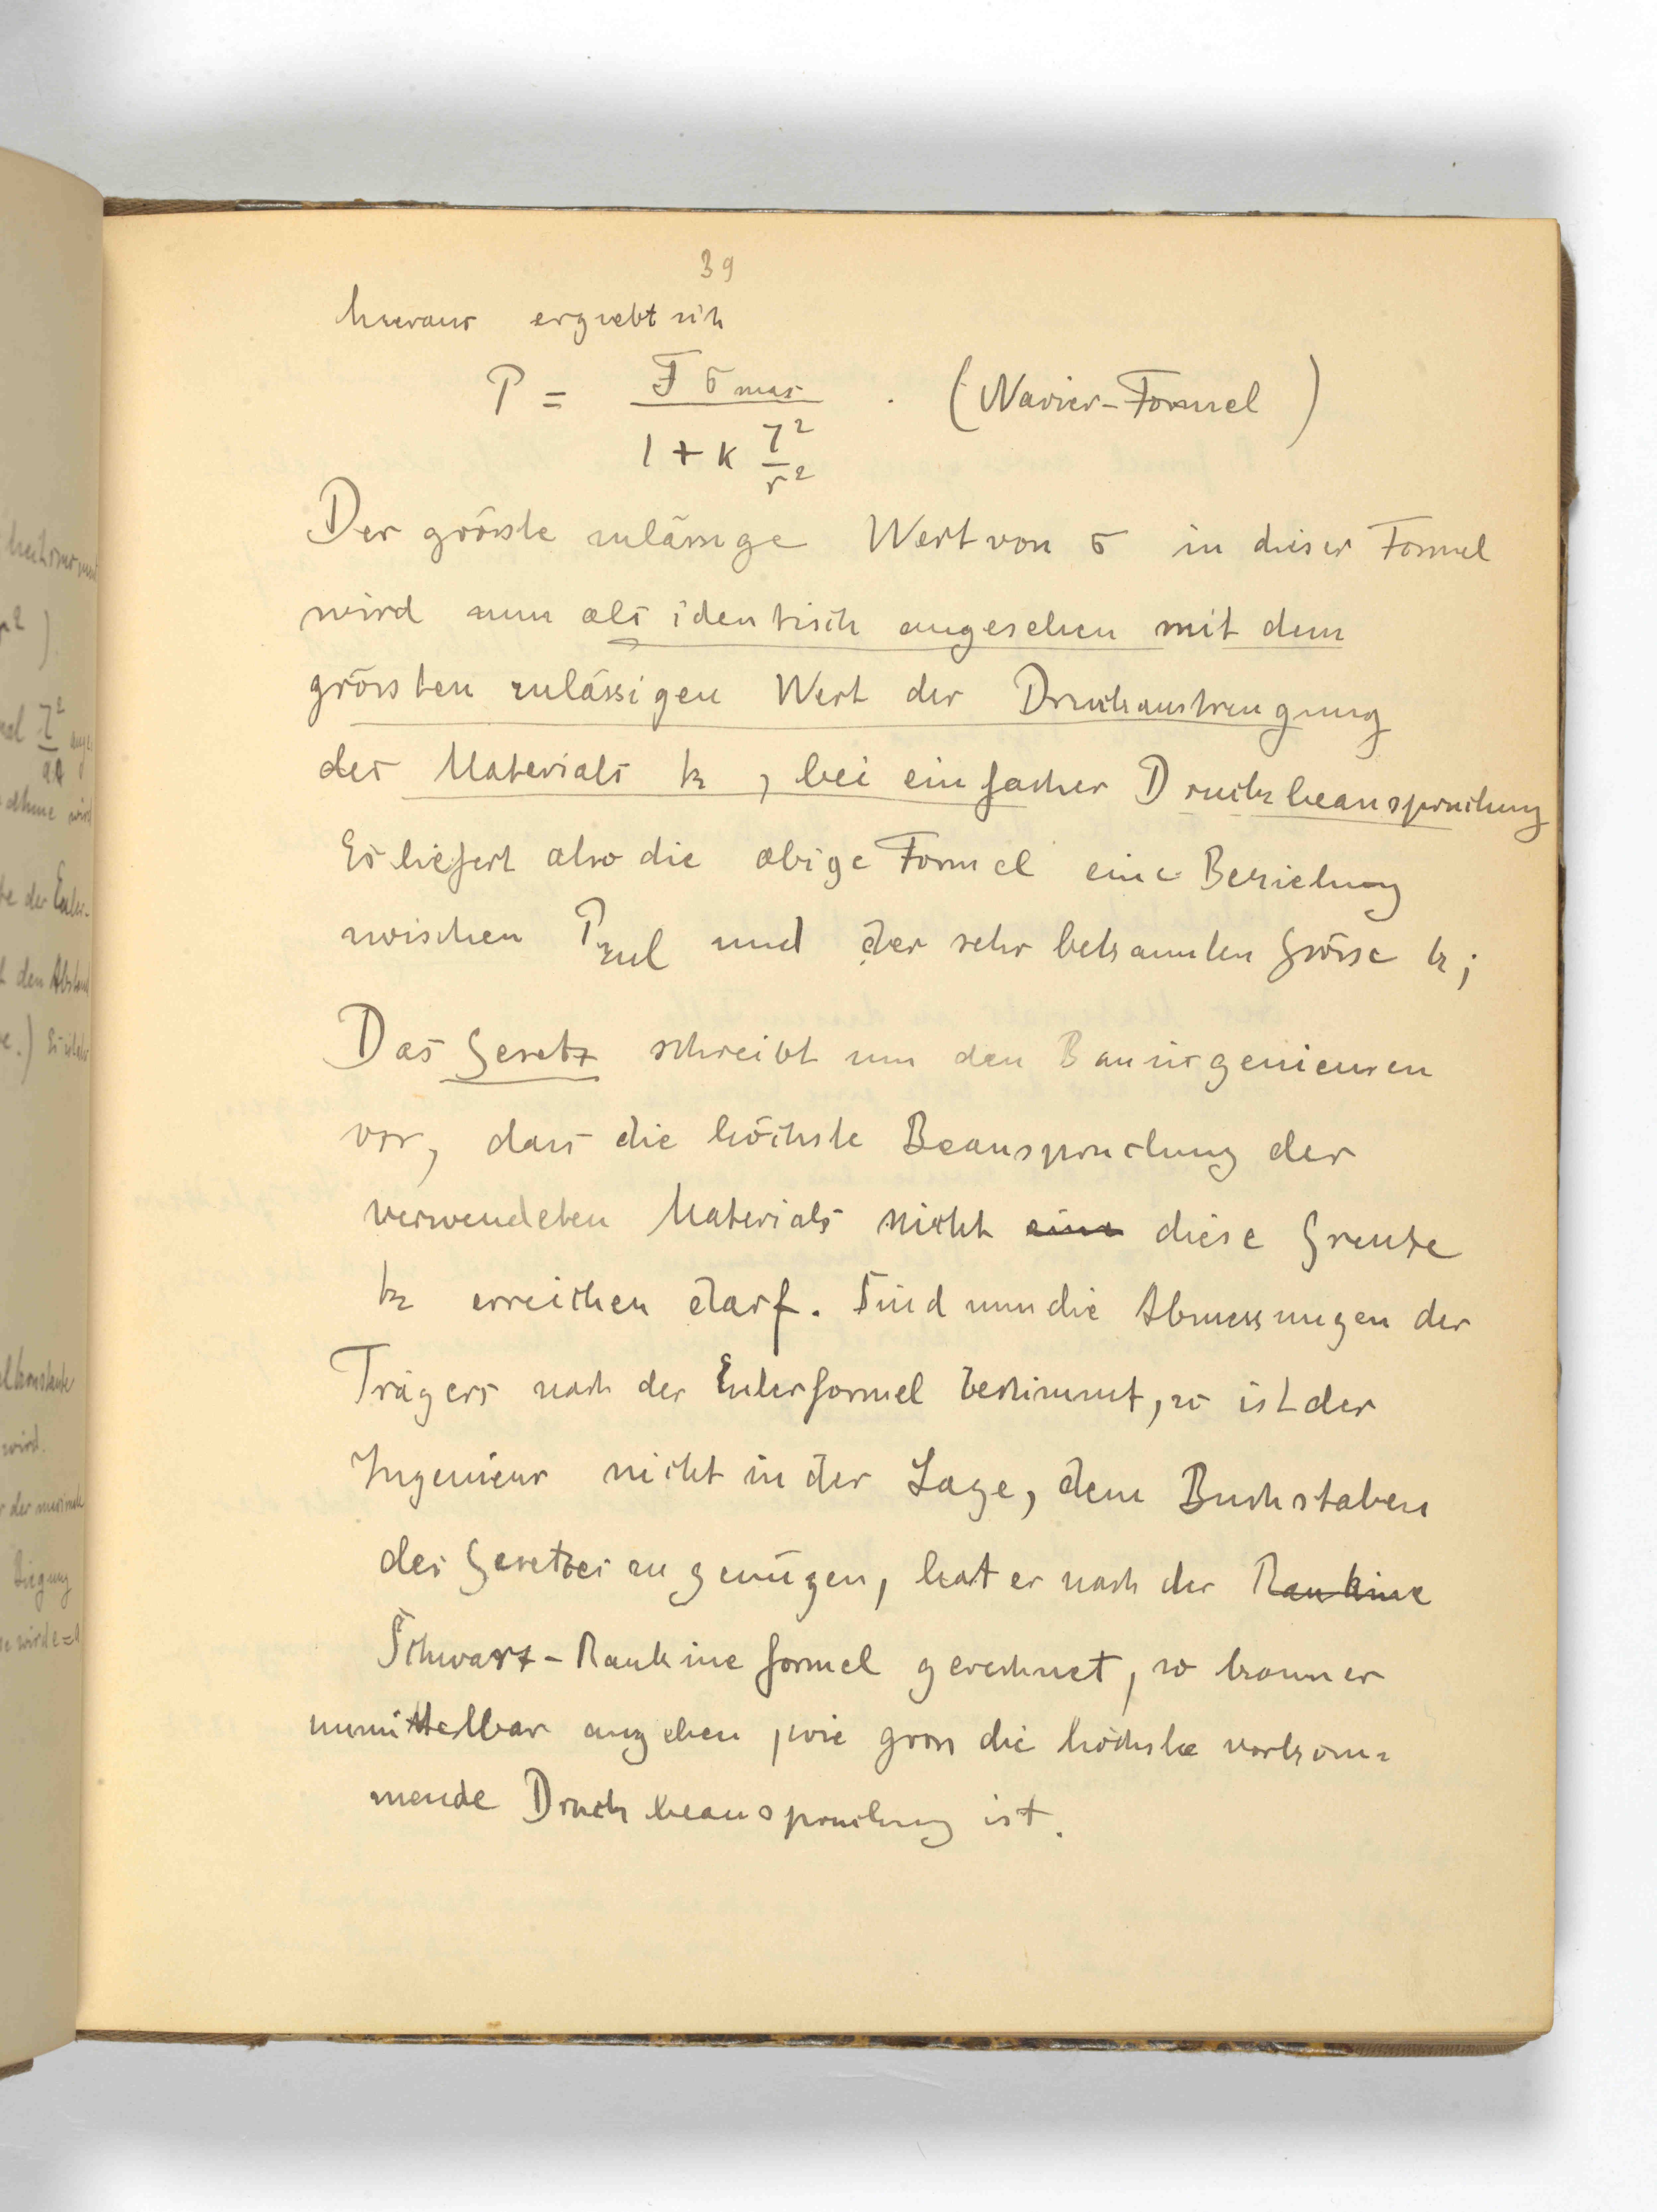 39
hieraus ergiebt sich
P = F σ max / 1 + k l² / r² . (Navier-Formel)
Der grösste zulässige Wert von σ in dieser Formel
wird nun als identisch angesehen mit dem
grössten zulässigen Wert der Druckanstrengung
des Materials k, bei einfacher Druckbeanspruchung
Es liefert also die obige Formel eine Beziehung
zwischen P zul und der sehr bekannten Grösse k;
Das Gesetz schreibt nun den Bauingenieuren
vor, dass die höchste Beanspruchung des
verwendeten Materials nicht eine diese Grentze
k erreichen darf. Sind nun die Abmessungen des
Trägers nach der Eulerformel bestimmt, so ist der
Ingenieur nicht in der Lage, dem Buchstaben
des Gesetzes zu genügen, hat er nach der Rankine
Schwarz-Rankineformel gerechnet, so kann er
unmittelbar angeben, wie gross die höchste vorkom=
mende Druckbeanspruchung ist.